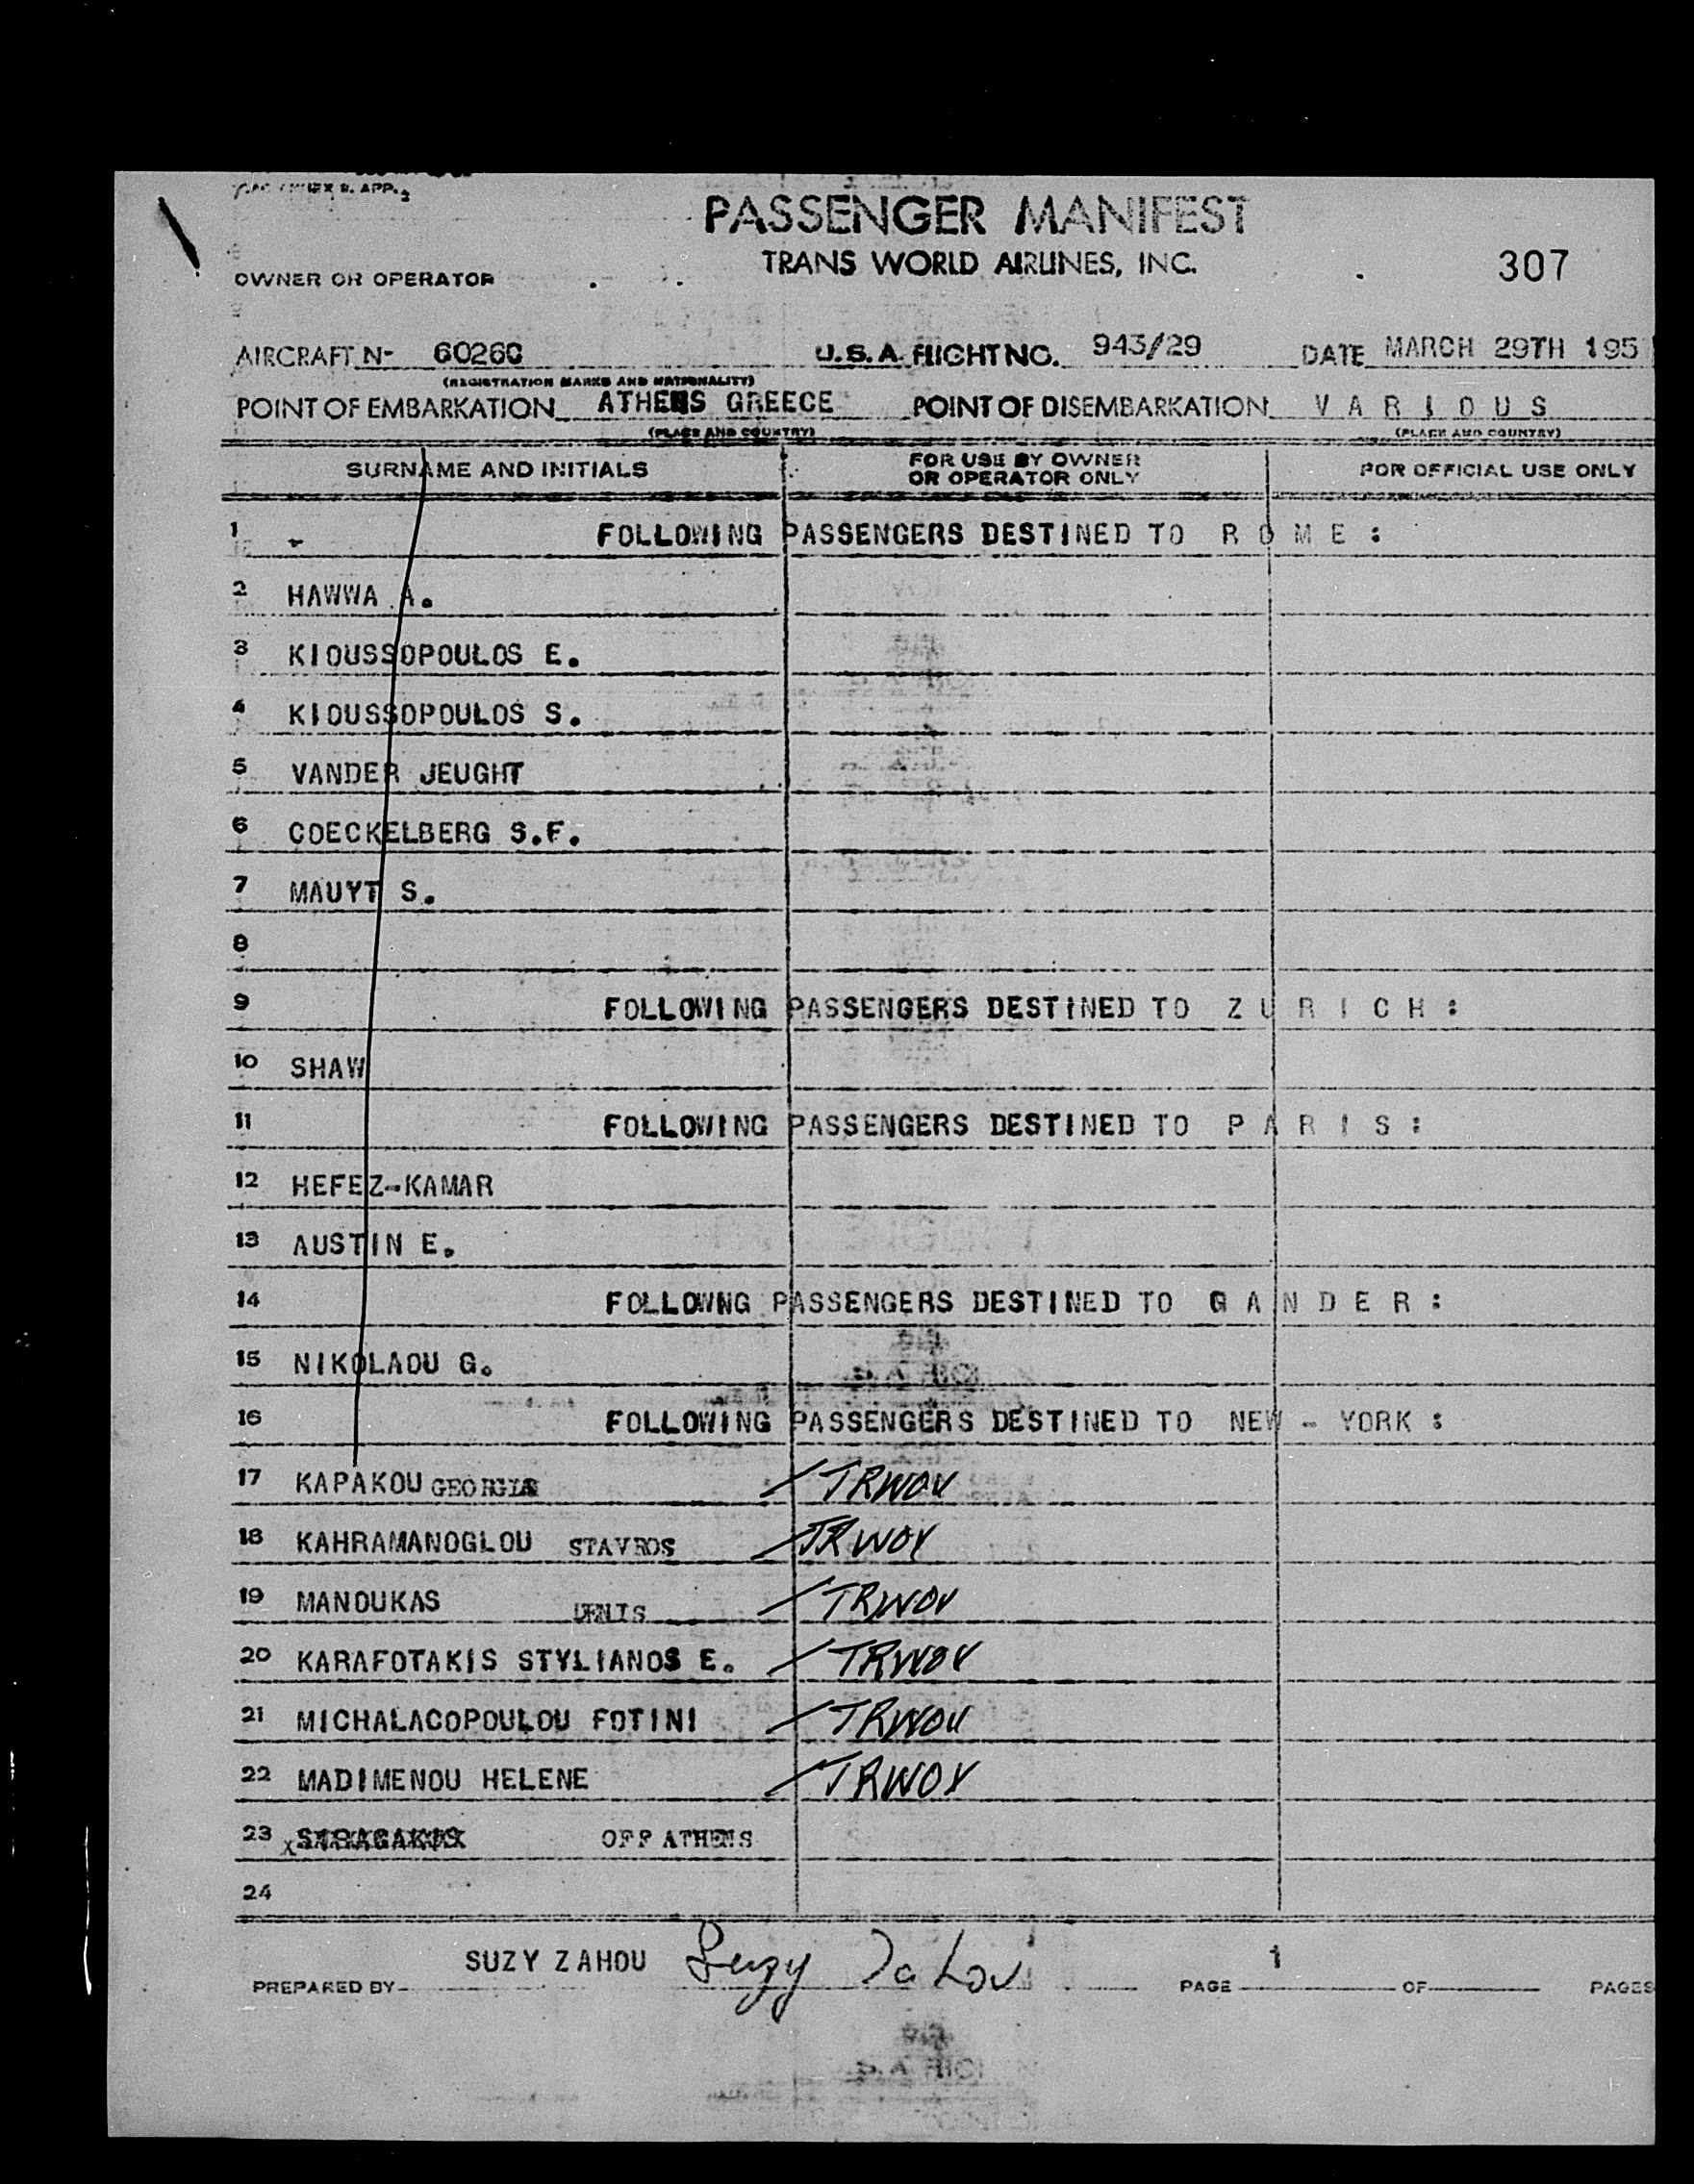 PASSENGER MANIFEST
TRANS WORLD AIRLINES, INC.
307
OWNER OR OPERATOR
AIRCRAFT N- 6026C U.S.A. FLIGHT NO. 943/29 DATE MARCH 29TH 195
(REGISTRATION MARKS AND NATIONALITY)
POINT OF EMBARKATION ATHENS GREECE POINT OF DISEMBARKATION V A R I O U S
(PLACE AND COUNTRY) (PLACE AND COUNTRY)
SURNAME AND INITIALS FOR USE BY OWNER OR OPERATOR ONLY FOR OFFICIAL USE ONLY
1 FOLLOWING PASSENGERS DESTINED TO R O M E :
2 HAWWA A.
3 KIOUSSOPOULOS E.
4 KIOUSSOPOULOS S.
5 VANDER JEUGHT
6 COECKELBERG S.F.
7 MAUYT S.
8
9 FOLLOWING PASSENGERS DESTINED TO Z U R I C H :
10 SHAW
11 FOLLOWING PASSENGERS DESTINED TO P A R I S :
12 HEFEZ-KAMAR
13 AUSTIN E.
14 FOLLOWNG PASSENGERS DESTINED TO G A N D E R :
15 NIKOLAOU G.
16 FOLLOWING PASSENGERS DESTINED TO NEW - YORK :
17 KAPAKOU TRWOV
18 KAHRAMANOGLOU STAVROS TRWOV
19 MANOUKAS DENIS TRWOV
20 KARAFOTAKIS STYLIANOS E. TRWOV
21 MICHALACOPOULOU FOTINI TRWOV
22 MADIMENOU HELENE TRWOV
23 OFF ATHENS
24
SUZY ZAHOU Suzy Zahou
PREPARED BY PAGE 1 OF PAGES